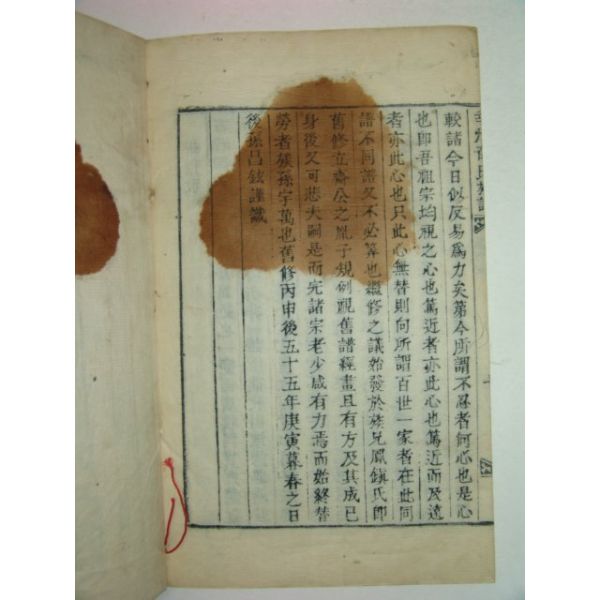 氏族譜
較諸今日似反易爲力矣第今所謂不忍者何心也是心
也卽吾祖宗均視之心也篤近者亦此心也篤近而及遠
者亦此心也只此心無替則向所謂百世一家者在此同
譜不同譜又不必算也繼修之議始發於族兄鳳鎭氏卽
舊修立齋公之胤子規例視舊譜經畫且有方及其成已
身後又可悲夫嗣是而完諸宗老少咸有力焉而始終替
勞者族孫宇萬也舊修丙申後五十五年庚寅暮春之日
後孫昌鉉謹識